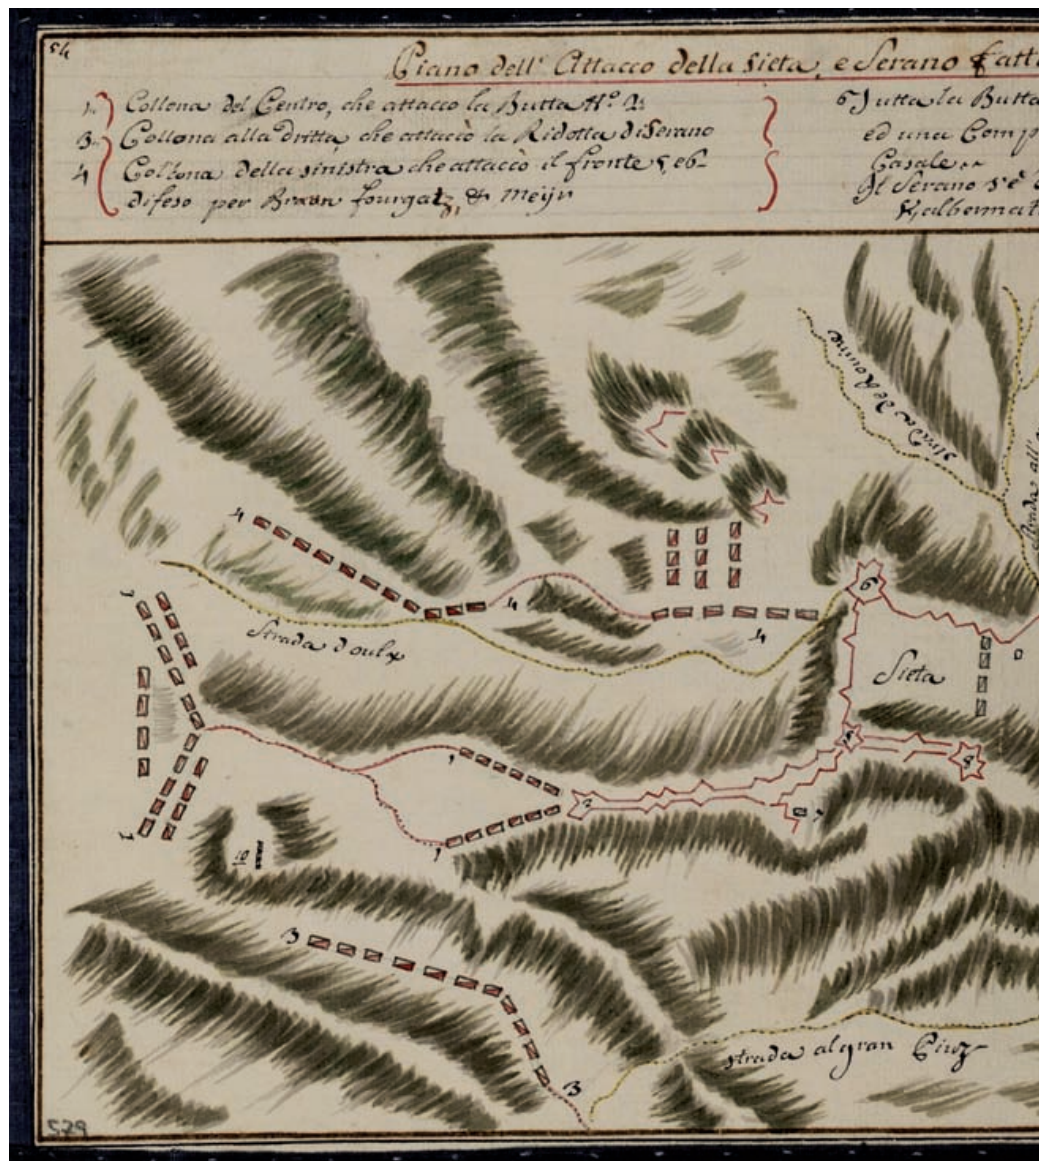 54
Piano dell' Attacco della Sieta, e Serano fatt
1.. Collona del Centro, che attaccò la Butta No. 2:
3.. Collona alla dritta che attaccò la Ridotta di Serano
4 Collona della sinistra che attaccò il fronte 5, e 6
difeso per Braun fourgatz, & Meijr
6 Tutta la Butta
ed una Comp
Casale..
Il Serano s'è
Strada de
strada all'
4
4
4
Strada d'oulx
6
Sieta
1
1
1
1
2
5
8
7
10
3
3
strada al gran
579